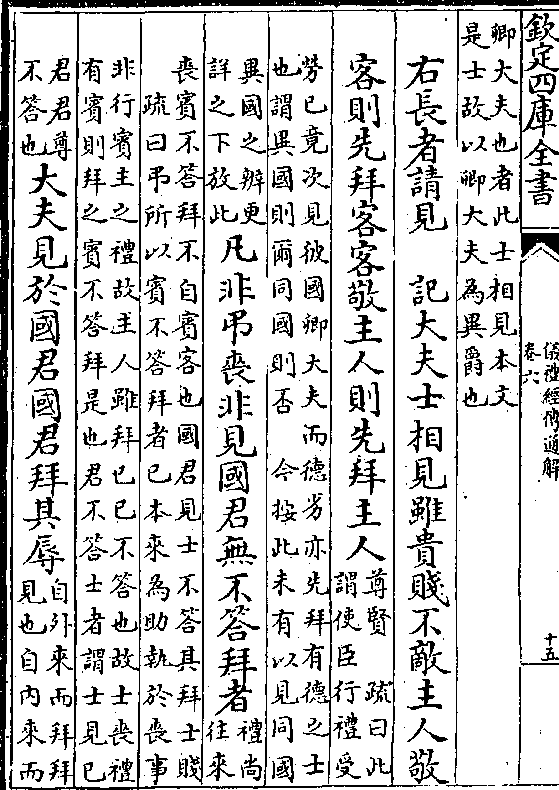 欽定四庫全書
儀禮經傳通解
卷六
十五
卿大夫也者此士相見本文
是士故以卿大夫為異爵也
右長者請見　記大夫士相見雖貴賤不敵主人敬
客則先拜客客敬主人則先拜主人
尊賢　疏曰此
謂使臣行禮受
勞已竟次見彼國卿大夫而德劣亦先拜有德之士
也謂異國則爾同國則否　今按此未有以見同國
異國之辨更
詳之下放此
凡非弔喪非見國君無不答拜者
禮尚
往來
喪賓不答拜不自賓客也國君見士不答其拜士賤
　疏曰弔所以賓不答拜者已本來為助執於喪事
非行賓主之禮故主人雖拜已已不答也故士喪禮
有賓則拜之賓不答拜是也君不答士者謂士見已
君君尊
不答也
大夫見於國君國君拜其辱
自外來而拜拜
見也自內來而